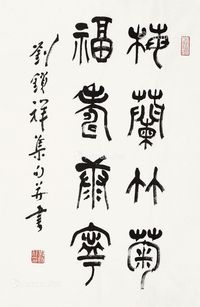 梅蘭竹菊
福壽康寧
劉鎖祥集句并書